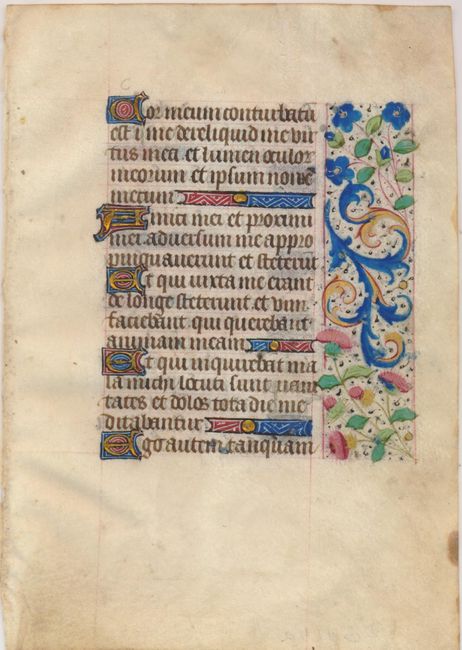 Cor meum conturbatū
est ī me dereliquid me vir
tus mea et lumen oculor
meorum et ipsum nō ē
mecum
Amici mei et proximi
mei adversum me appro
pinquaverunt et steterūt
Et qui iuxta me erant
de longe steterunt et vim
faciebant qui querebāt
animam meam
Et qui inquirebāt ma
la michi locuti sunt vani
tates et dolos tota die me
ditabantur
Ego autem tanquam